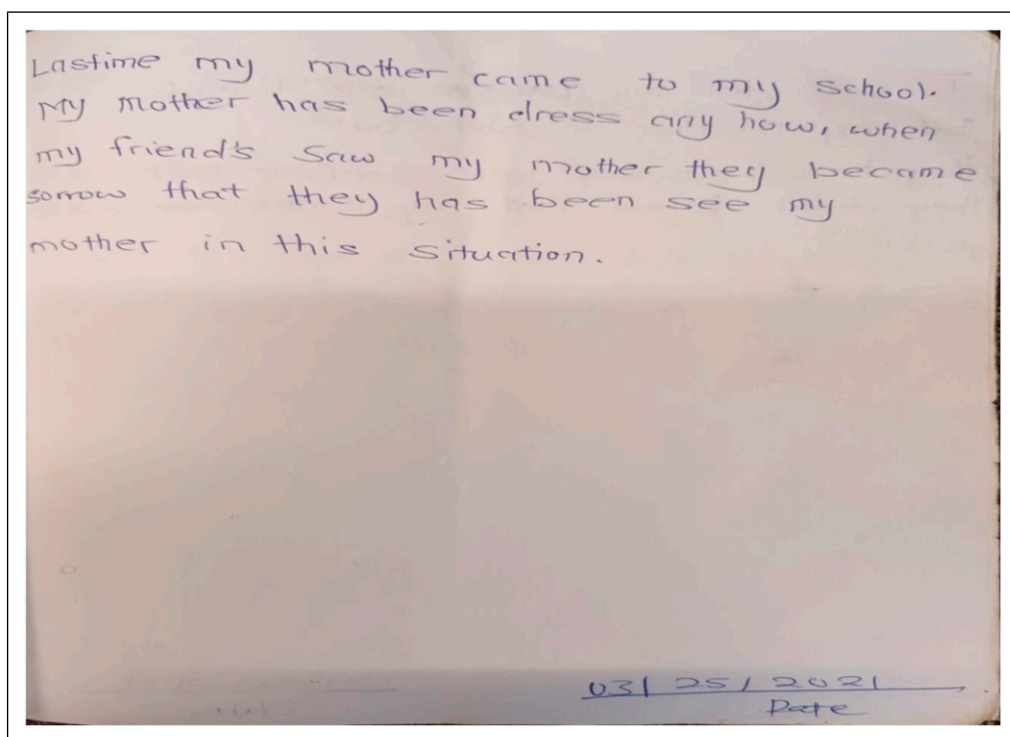 Lastime my mother came to my school.
My mother has been dress any how, when
my friend's saw my mother they became
sorrow that they has been see my
mother in this situation.
03/25/2021
Date